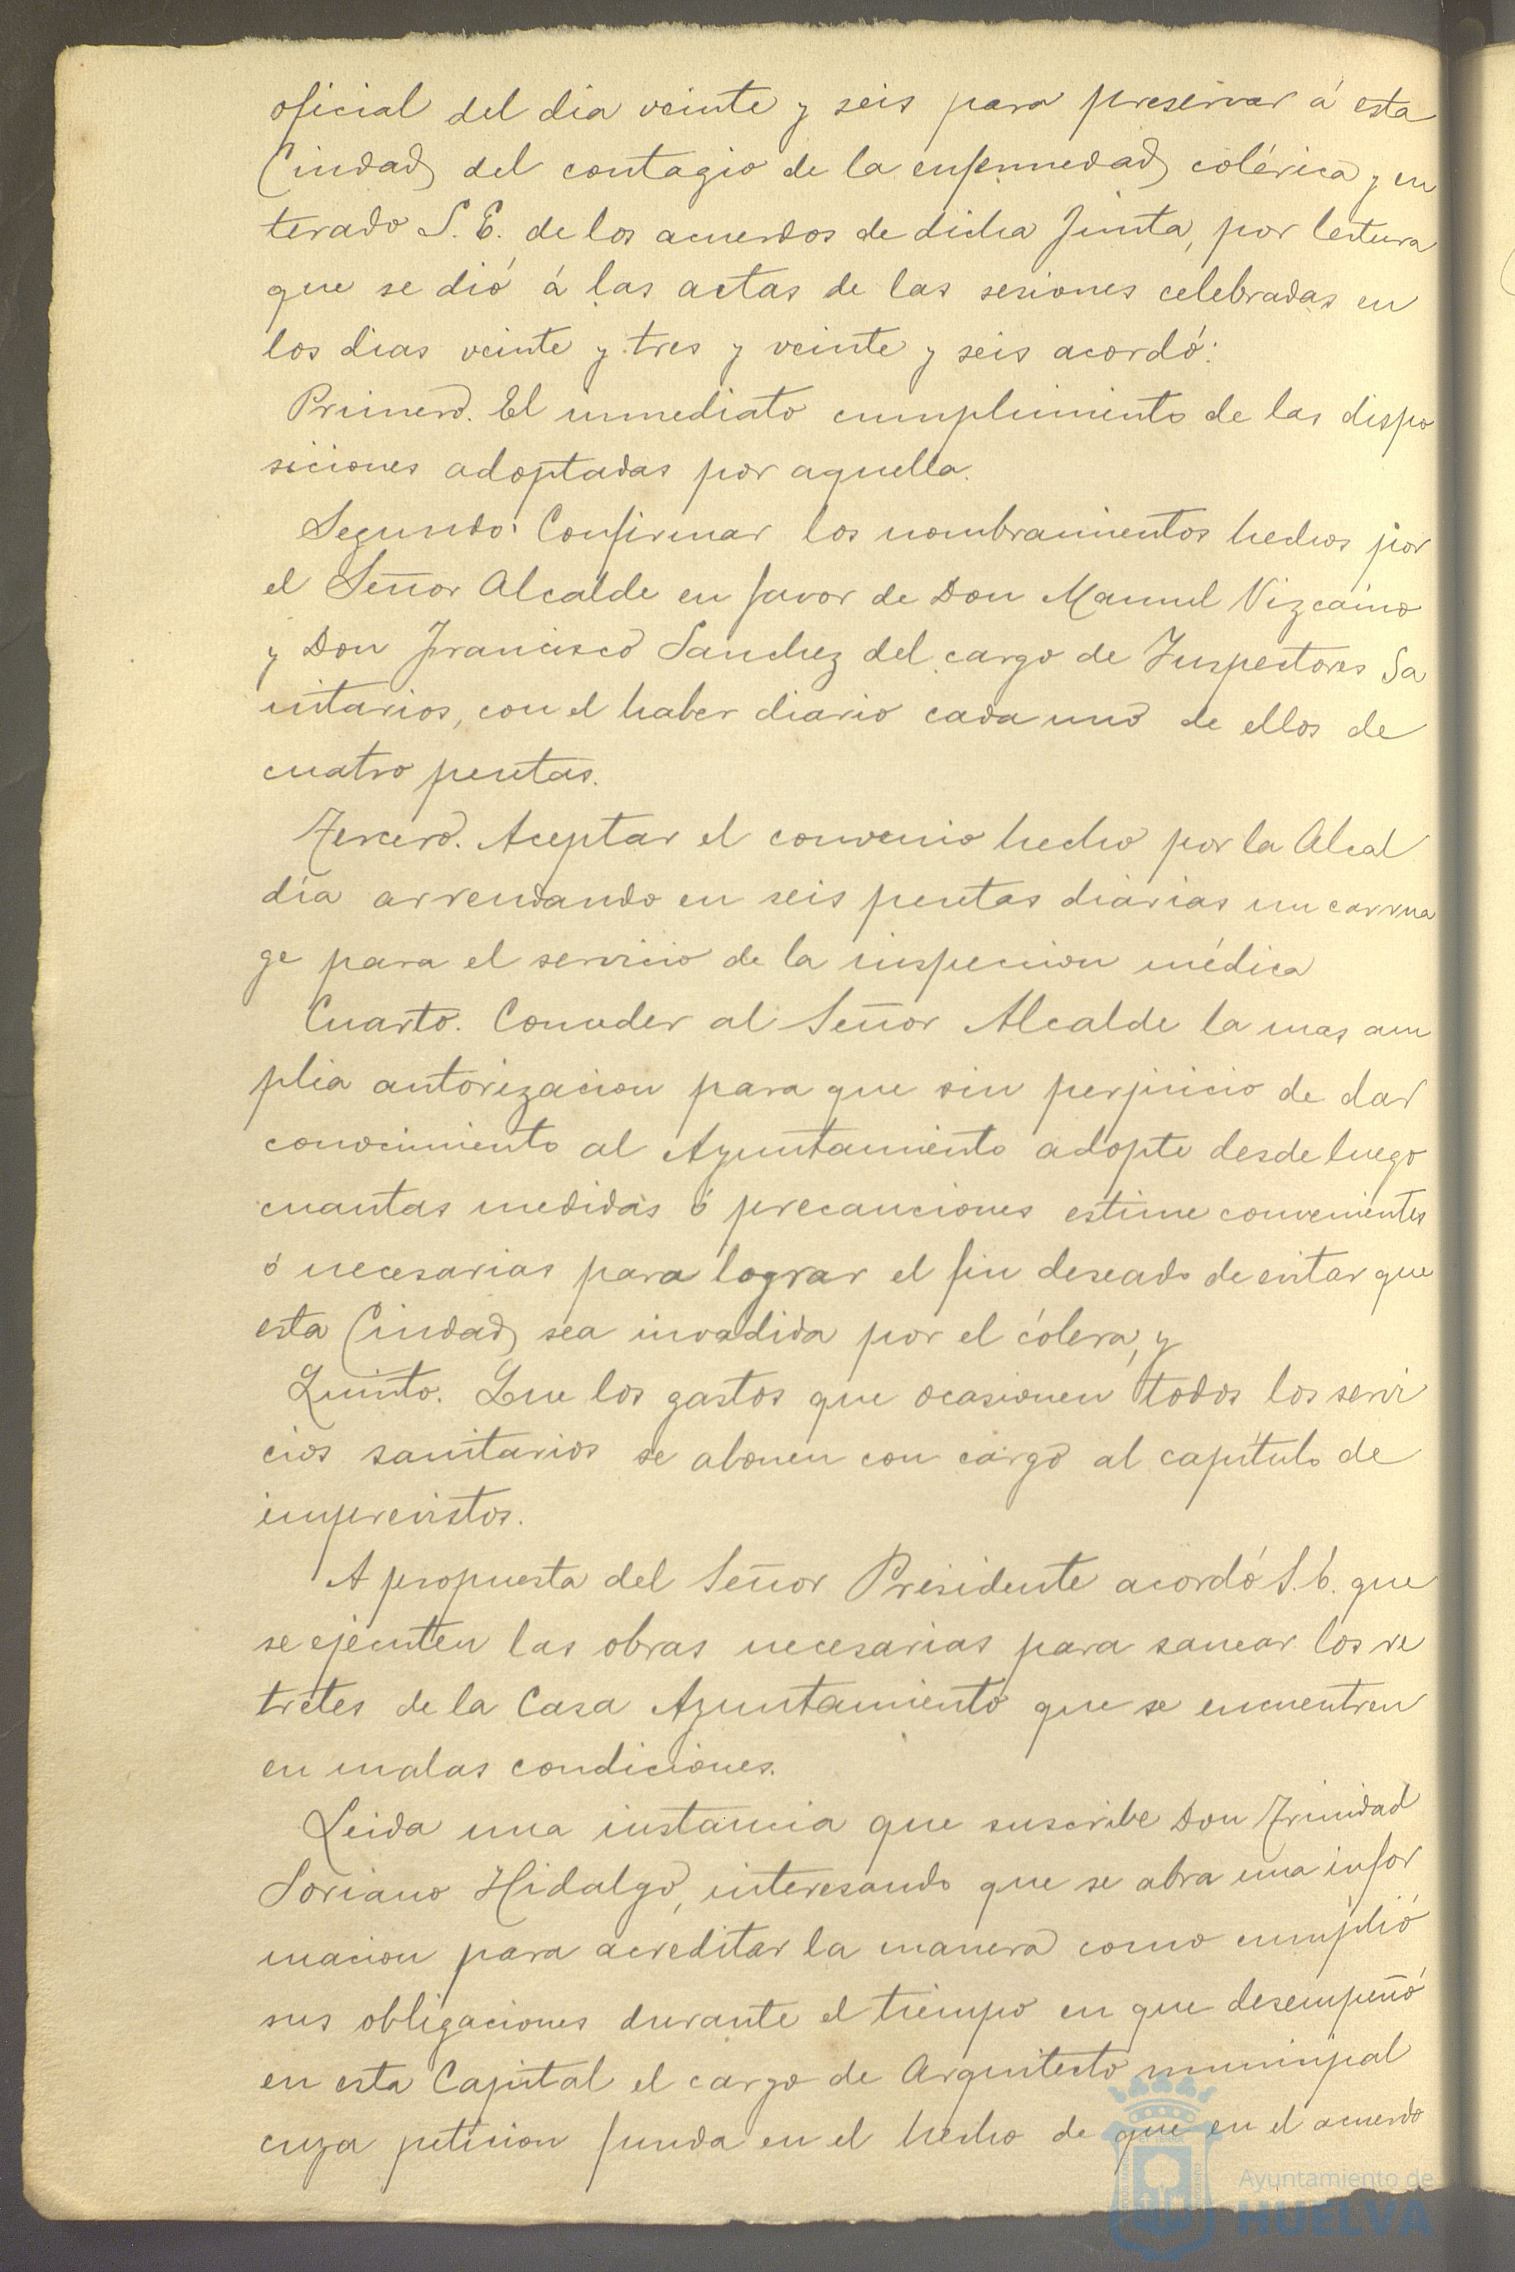 oficial del dia veinte y seis para preservar á esta
Ciudad del contagio de la enfermedad colérica y en
terado S. E. de los acuerdos de dicha Junta, por lectura
que se dió á las actas de las sesiones celebradas en
los dias veinte y tres y veinte y seis acordó:
Primero. El inmediato cumplimiento de las dispo
siciones adoptadas por aquella.
Segundo: Confirmar los nombramientos hechos por
el Señor Alcalde en favor de Don Manuel Vizcaino
y Don Francisco Sanchez del cargo de Inspectores Sa
nitarios, con el haber diario cada uno de ellos de
cuatro pesetas.
Tercero. Aceptar el convenio hecho por la Alcal
día arrendando en seis pesetas diarias un carrua
ge para el servicio de la inspeccion médica
Cuarto. Conceder al Señor Alcalde la mas am
plia autorizacion para que sin perjuicio de dar
conocimiento al Ayuntamiento adopte desde luego
cuantas medidas ó precauciones estime convenientes
ó necesarias para lograr el fin deseado de evitar que
esta Ciudad sea invadida por el cólera, y
Quinto. Que los gastos que ocasionen todos los servi
cios sanitarios se abonen con cargo al capítulo de
imprevistos.
A propuesta del Señor Presidente acordó S. E. que
se ejecuten las obras necesarias para sanear los re
tretes de la Casa Ayuntamiento que se encuentren
en malas condiciones.
Leida una instancia que suscribe Don Trinidad
Soriano Hidalgo, interesando que se abra una infor
macion para acreditar la manera como cumplió
sus obligaciones durante el tiempo en que desempeñó
en esta Capital el cargo de Arquitecto municipal
cuya peticion funda en el hecho de que en el acuerdo
Ayuntamiento de
HUELVA